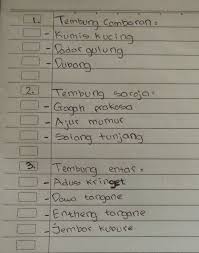 1. Tembung Camboran:
- Kumis kucing
- Dadar gulung
- Dubang
2. Tembung saroja:
- Gagah prakosa
- Ajur mumur
- Salang tunjang
3. Tembung entar:
- Adus kringet
- Dawa tangane
- Entheng tangane
- Jembar kubure